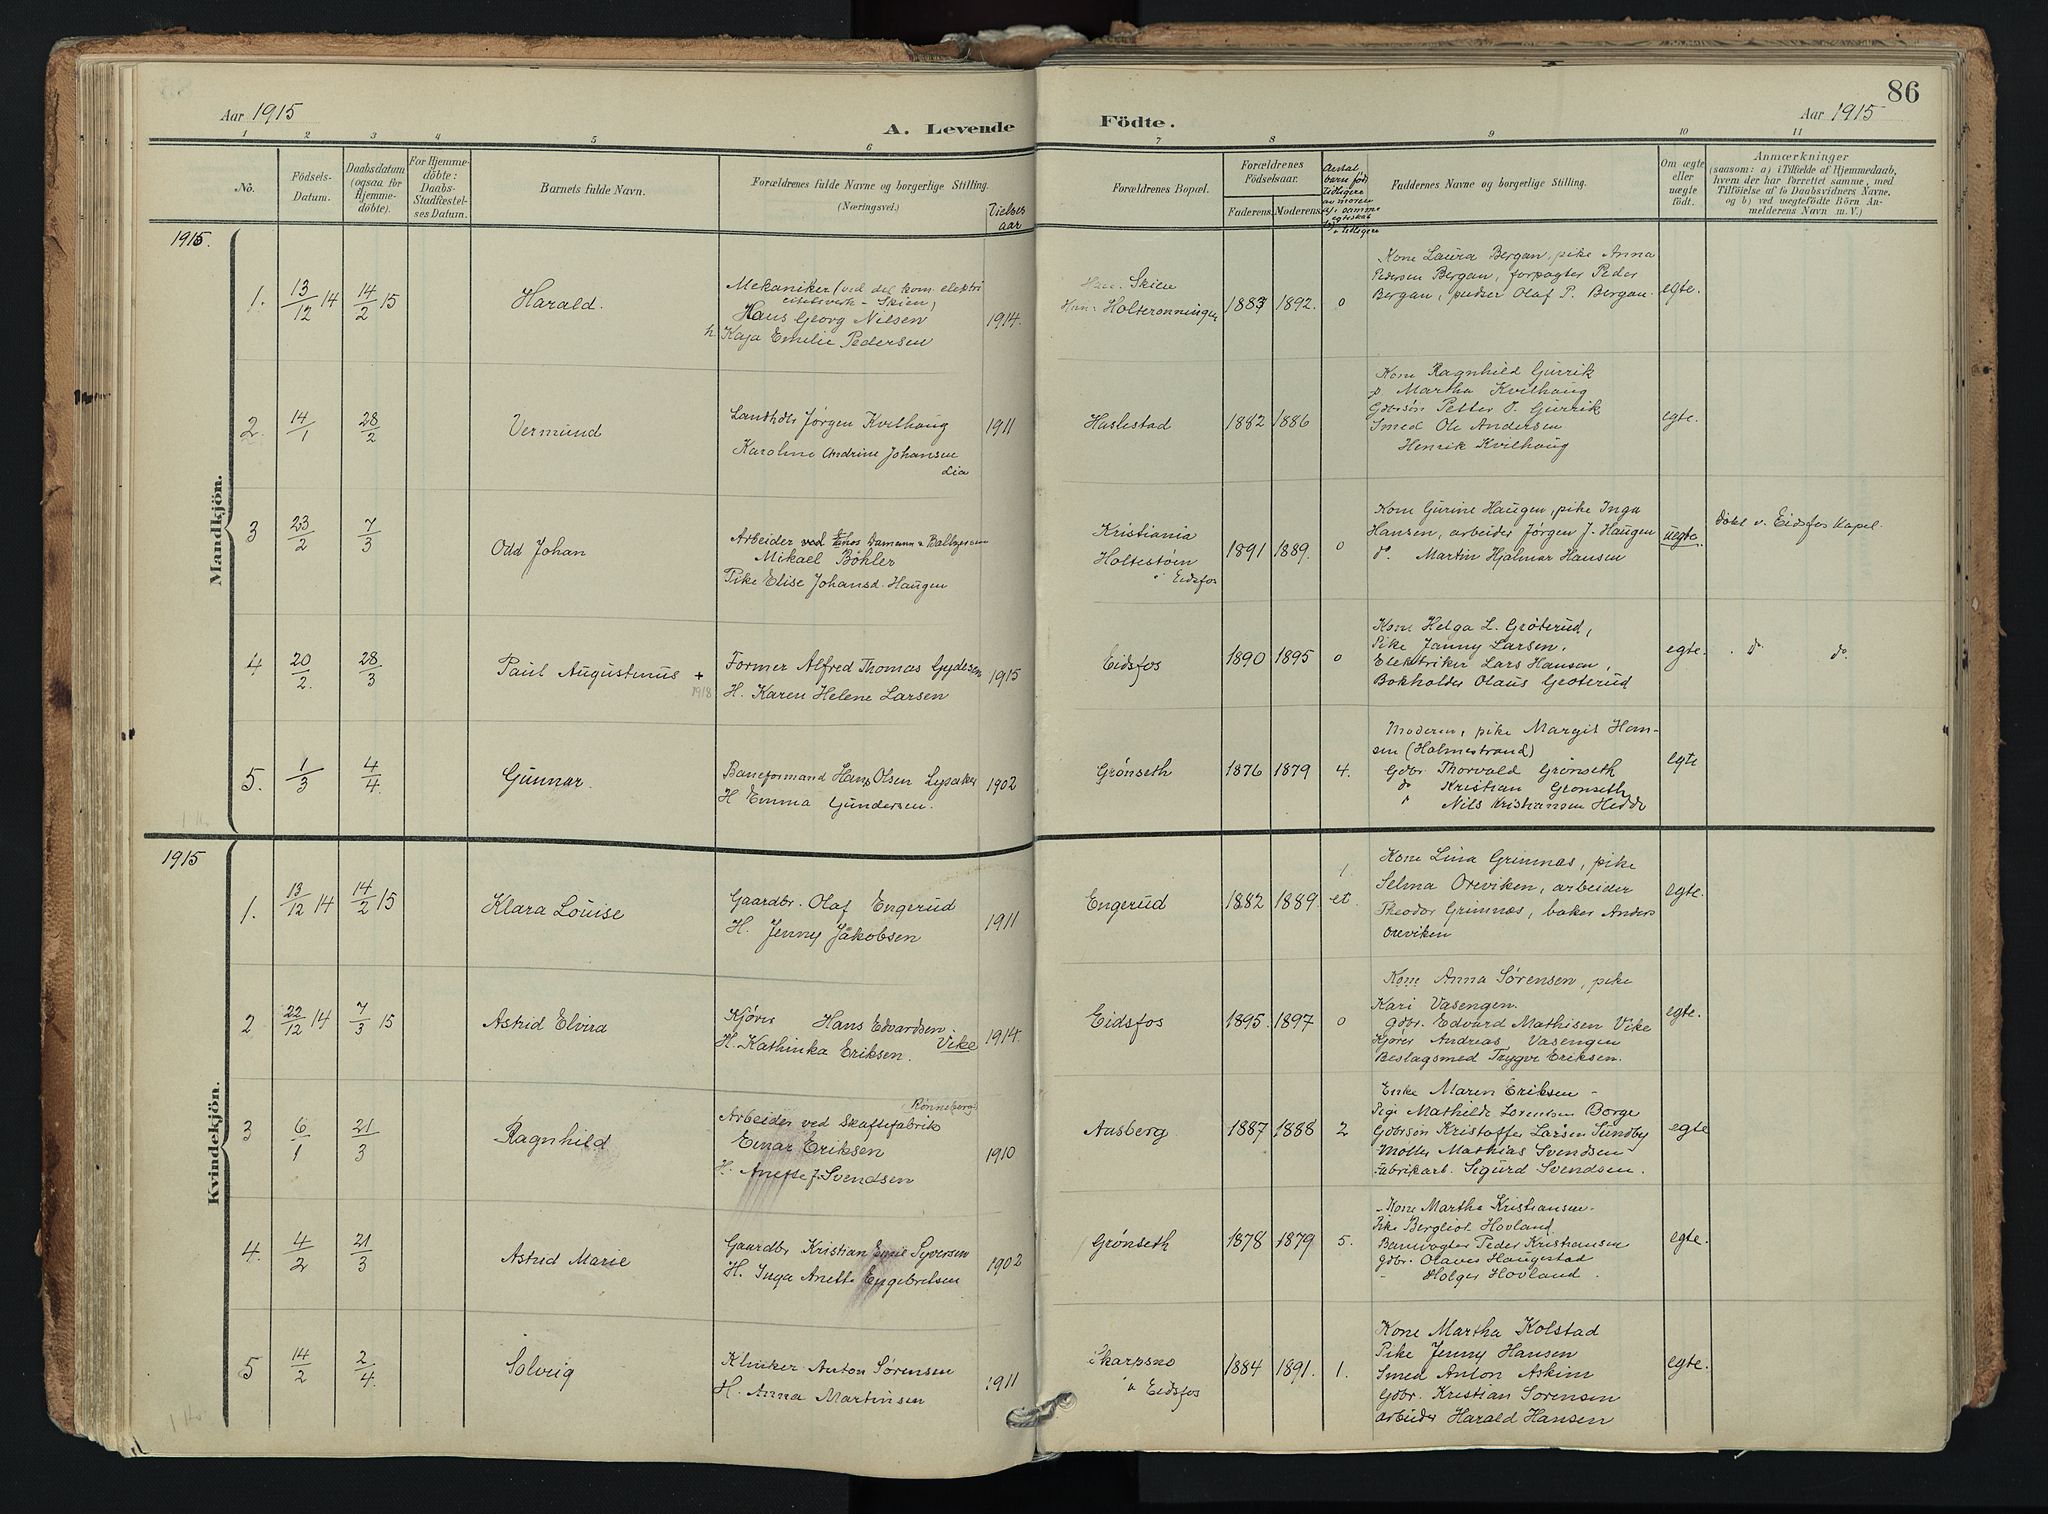 86
Aar 1915
A. Levende
Födte.
Aar 1915
1 2 3 4 5 6 7 8 9 10 11
No.
Födsels-
Datum.
Daabsdatum
(ogsaa for
Hjemme-
döbte).
For Hjemme-
döbte:
Daabs-
Stadfæstel-
ses Datum.
Barnets fulde Navn.
Forældrenes fulde Navne og borgerlige Stilling.
(Næringsvei.)
Vielses
aar
Forældrenes Bopæl.
Forældrenes
Födselsaar.
Faderens.
Moderens.
Antal
barn født
tidligere
av moren
a) i samme
egteskab
b) tidligere
Faddernes Navne og borgerlige Stilling.
Om ægte
eller
uægte
födt.
Anmærkninger
(saasom: a) i Tilfælde af Hjemmedaab,
hvem der har forrettet samme, med
Tilföielse af to Daabsvidners Navne,
og b) ved uægtefödte Börn An-
melderens Navn m. V.)
1915.
Mandkjön.
1. 13/12 14 14/2 15
Harald.
Mekaniker (ved det kom. elektri
citetsverk - Skien)
Hans Georg Nilsen
h. Kaja Emilie Pedersen
1914.
Skien
Hun: Holterønningen
1883 1892. 0
Kone Laura Bergan, pike Anna
Pedersen Bergan, forpagter Peder
Bergan, pudser Olaf P. Bergan.
egte.
2. 14/1 28/2
Vermund
Landhdlr Jørgen Kvilhaug
Karoline Andrine Johansen
Lia
1911
Haslestad
1882 1886
Kone Ragnhild Gurrik
p. Martha Kvilhaug
Gdbrsøn Petter J. Gurrik
Smed Ole Andersen
Henrik Kvilhaug
egte.
3 23/2 7/3
Odd Johan
Arbeider ved Thos Damann & Baltzersen
Mikael Böhler
Pike Elise Johansd. Haugen
Kristiania
Holtestøen
i Eidsfos
1891 1889. 0
Kone Gurine Haugen, pike Inga
Hansen, arbeider Jørgen J. Haugen
do. Martin Hjalmar Hansen
uegte.
døbt v. Eidsfos Kapel.
4 20/2. 28/3
Paul Augustinus +
1918
Former Alfred Thomas Gydesen
H. Karen Helene Larsen
1915
Eidsfos
1890 1895 0
Kone Helga L. Grøterud,
Pike Janny Larsen,
Elektriker Lars Hansen,
Bokholder Olaus Grøterud
egte.
do. do.
5. 1/3 4/4
Gunnar.
Baneformand Hans Olsen Lysaker
H. Emma Gundersen.
1902
Grønseth
1876 1879 4.
Moderen, pike Margit Han-
sen (Holmestrand)
Gdbr. Thorvald Grønseth
do Kristian Grønseth
" Nils Kristiansen Hedde
egte
1915
Kvindekjön.
1. 13/12 14 14/2 15
Klara Louise
Gaardbr. Olaf Engerud
H. Jenny Jakobsen
1911
Engerud
1882 1889. 1.
et.
Kone Lina Grimnæs, pike
Selma Oreviken, arbeider
Theodor Grimnæs, baker Anders
Oreviken
egte.
2 22/12 14 7/3 15
Astrid Elvira
Kjører Hans Edvardsen
Vike
H. Kathinka Eriksen.
1914.
Eidsfos
1895. 1897 0
Kone Anna Sørensen, pike
Kari Vasengen.
Gdbr. Edvard Mathisen Vike
Kjører Andreas Vasengen
Beslagsmed Trygve Eriksen.
egte.
3 6/1 21/3
Ragnhild
(Rønneberg)
Arbeider ved Skaftefabrik
Einar Eriksen
H. Anette J. Svendsen
1910
Aasberg
1887 1888 2
Enke Maren Eriksen -
Pige Mathilde Lorentsen Borge
Gdbrsøn Kristoffer Larsen Sundby
Møller Mathias Svendsen
Fabrikarb. Sigurd Svendsen.
egte
4. 4/2 21/3
Astrid Marie
Gaardbr Kristian Emil Syversen
H. Inga Anette Engebretsen
1902
Grønseth
1878 1879 5.
Kone Martha Kristiansen.
Pike Bergliot Hovland
Banevogter Peder Kristiansen
Gdbr. Olaves Haugestad
" Holger Hovland.
egte.
5 14/2 2/4.
Solveig
Klinker Anton Sørensen
H. Anna Martinsen
1911
Skarpsno
v Eidsfos
1884 1891. 1.
Kone Martha Kolstad
Pike Jenny Hansen
Smed Anton Askim
Gdbr. Kristian Sørensen
arbeider Harald Hansen
egte.